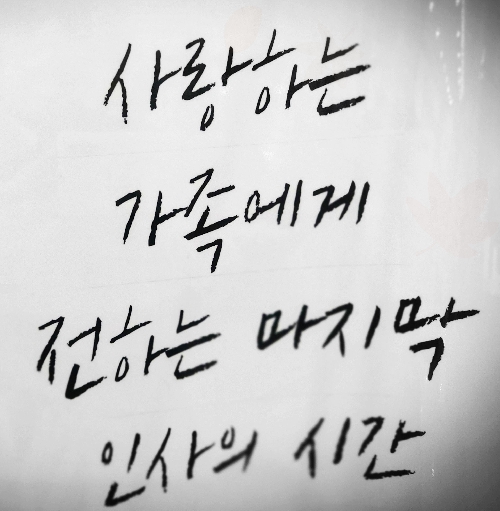 사랑하는
가족에게
전하는 마지막
인사의 시간